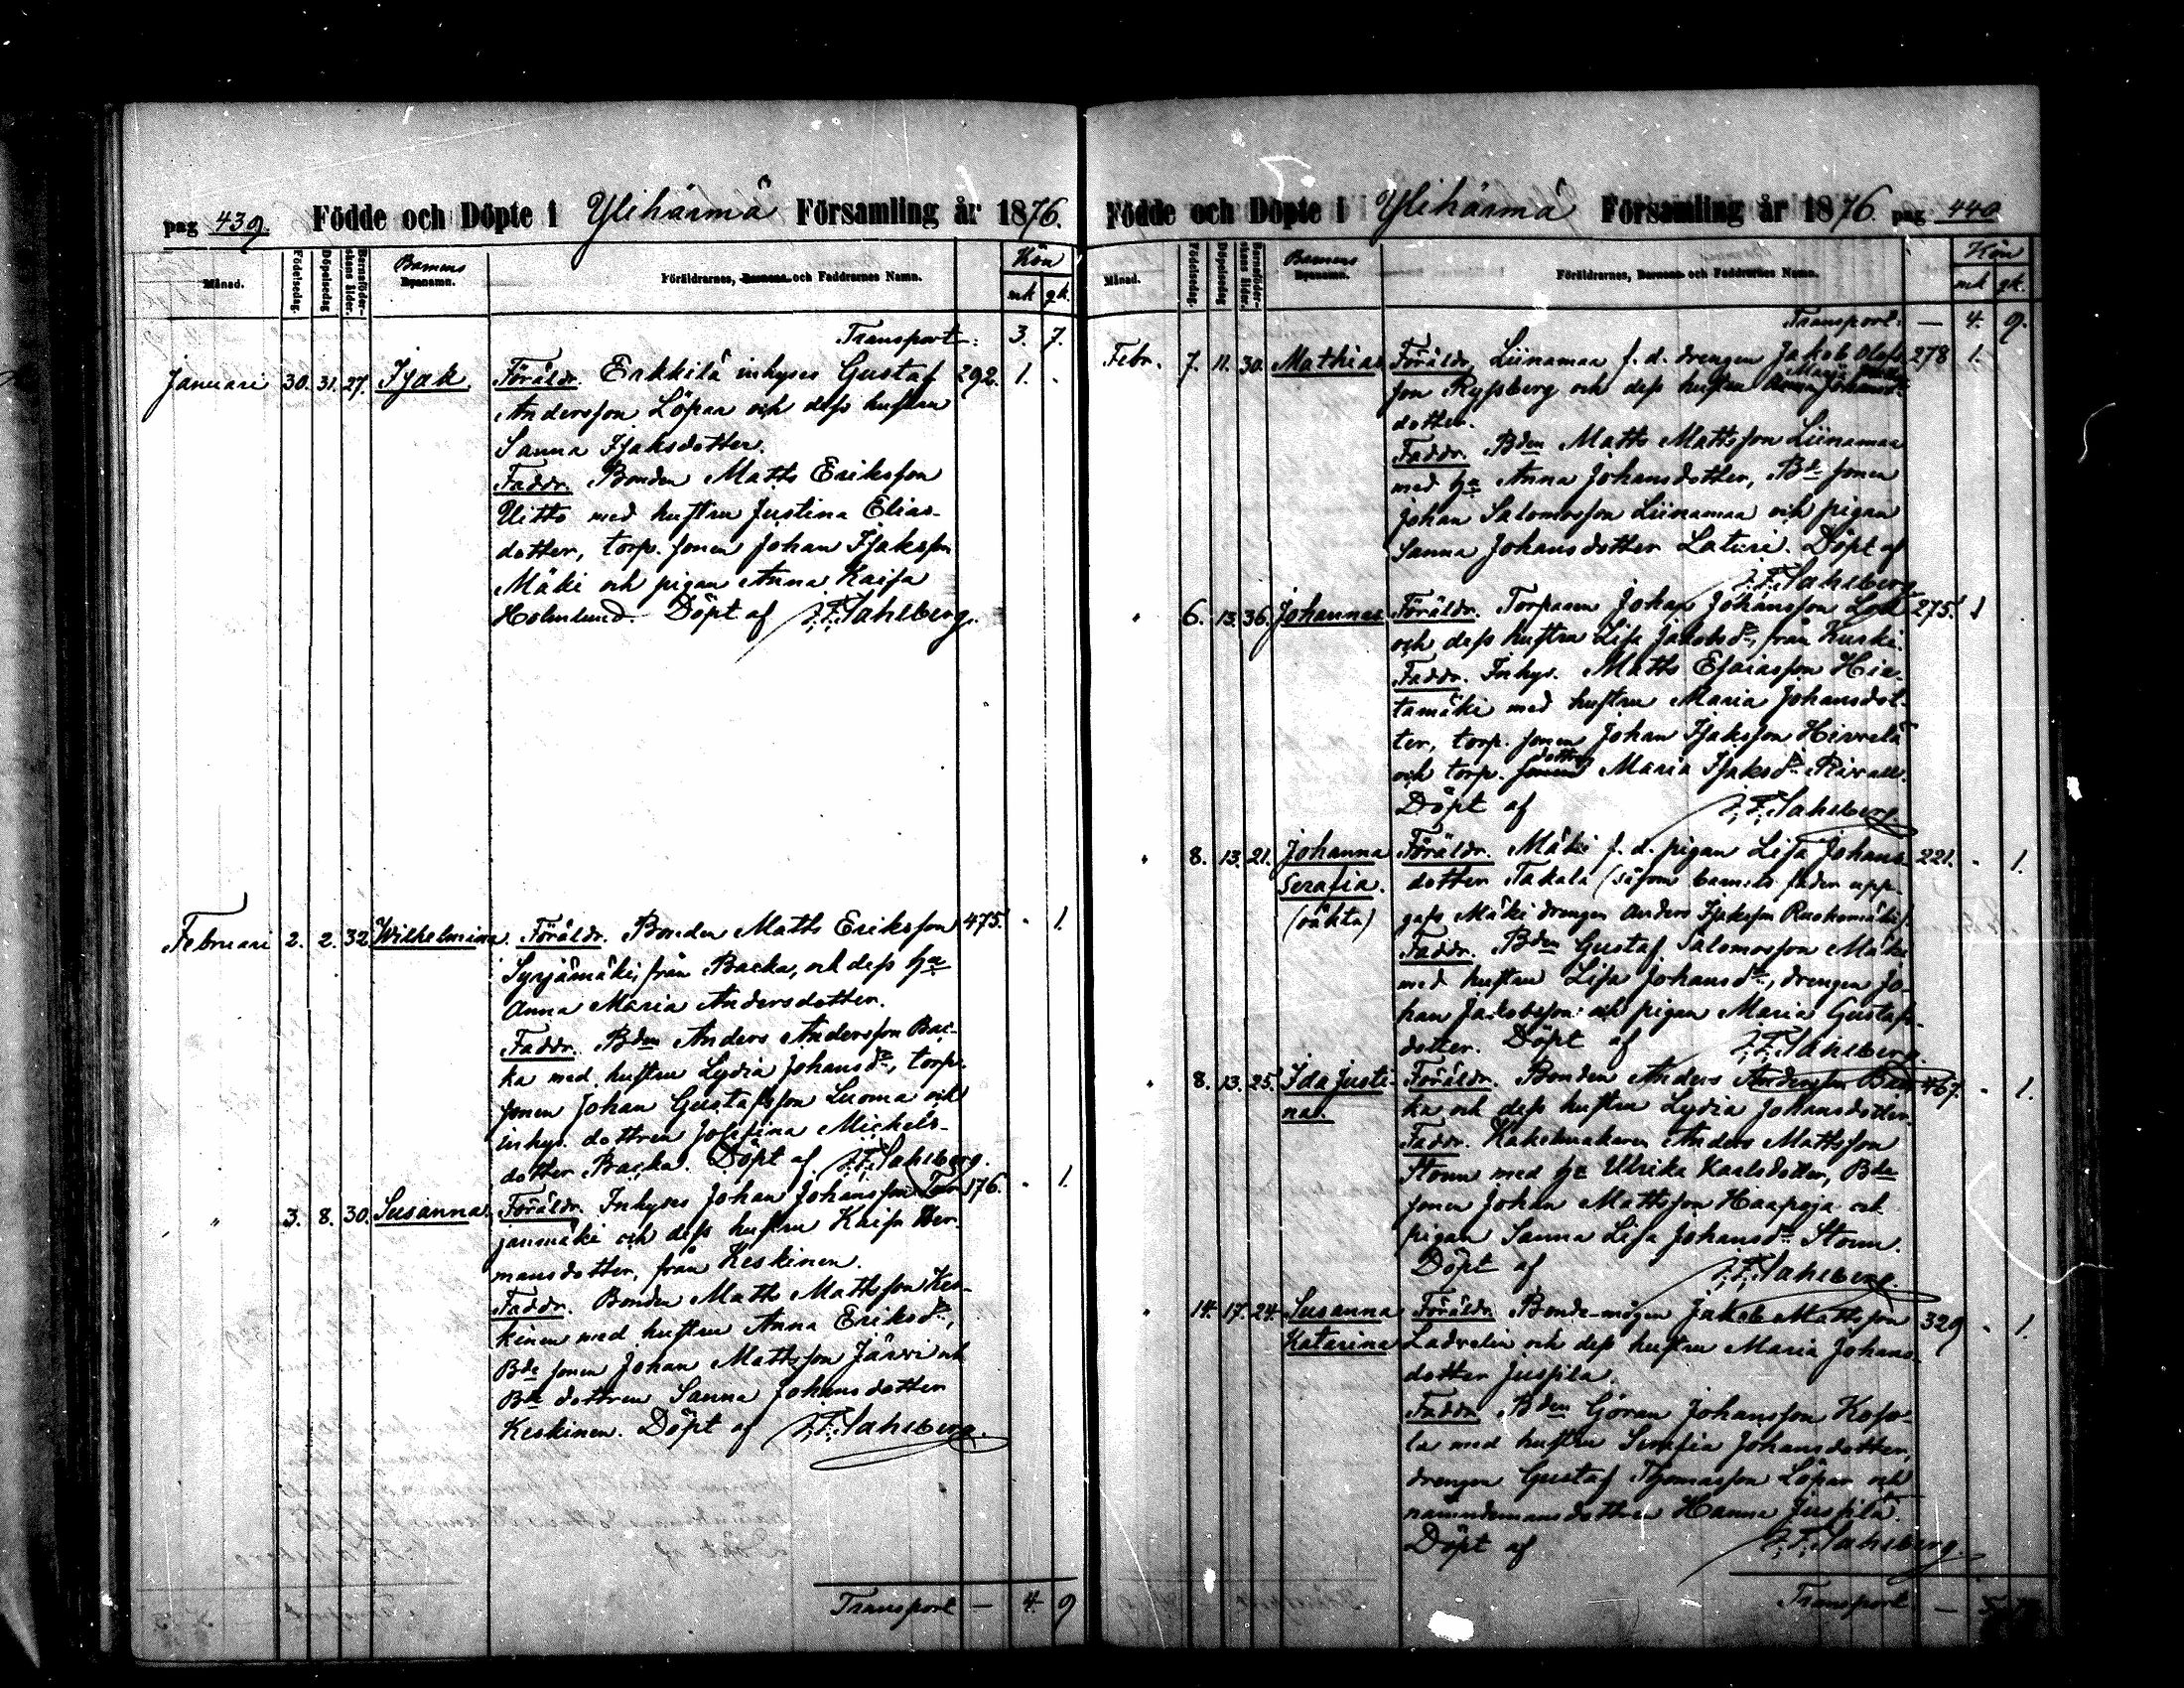 pag 439. Födde och Döpte i Ylihärmä Församling år 1876.
Månad. Födelsedag. Döpelsedag Barnaföderskans ålder. Barnens Byanamn. Föräldrarnes, Barnens och Faddrarnes Namn. Kön
mk qk.
Transport: 3. 7.
Januari 30. 31. 27. Isak. Föräldr. Erkkilä inhyses Gustaf 292. 1. .
Andersson Löpar och dess hustru
Sanna Isaksdotter.
Faddr. Bonden Matts Eriksson
Uitto med hustru Justina Elias-
dotter, torp. sonen Johan Isaksson
Mäki och pigan Anna Kaisa
Holmlund. Döpt af J. F. Sahlberg.
Februari 2. 2. 32 Wilhelmina. Föräldr. Bonden Matts Eriksson 475. . 1.
Syrjämäki, från Backa, och dess ha
Anna Maria Andersdotter.
Faddr. Bden Anders Andersson Bac-
ka med hustru Lydia Johansdr, torp.
sonen Johan Gustafsson Luoma och
inhys. dottren Josefina Michels-
dotter Backa. Döpt af J. F. Sahlberg.
" 3. 8. 30. Susanna. Föräldr. Inhyses Johan Johansson 176. . 1.
janmäki och dess hustru Kaisa Her-
mansdotter, från Keskinen.
Faddr. Bonden Matts Mattsson Kes-
kinen med hustru Anna Eriksdr,
Bde sonen Johan Mattsson Järvi och
Bde dottren Sanna Johansdotter
Keskinen. Döpt af J. F. Sahlberg.
Transport — 4. 9
Födde och Döpte i Ylihärmä Församling år 1876. pag 440
Månad. Födelsedag. Döpelsedag Barnaföderskans ålder. Barnens Byanamn. Föräldrarnes, Barnens och Faddrarnes Namn. Kön
mk qk.
Transport. — 4. 9.
Febr. 7. 11. 30. Mathias Föräldr. Liinamaa f. d. drengen Jakob Olofs- 278 1.
son Ryssberg och dess hustru Maria
dotter.
Faddr. Bden Matts Mattsson Liinamaa
med ha Anna Johansdotter, Bde sonen
Johan Salomosson Liinamaa och pigan
Sanna Johansdotter Laturi. Döpt af
J. F. Sahlberg.
" 6. 13. 36. Johannes Föräldr. Torparen Johan Johansson 275. 1 .
och dess hustru Lisa Jakobsdr, från Kuski.
Faddr. Inhys. Matts Esaiasson Hie-
tamäki med hustru Maria Johansdot-
ter, torp. sonen Johan Isaksson Hirvelä
dottren
och torp. sonen Maria Isaksdr
Döpt af J. F. Sahlberg.
" 8. 13. 21. Johanna Föräldr. Mäki f. d. pigan Lisa Johans- 221. . 1.
Serafia. dotter Takala (såsom barnets fader upp-
(oäkta) gafs Mäki drengen Anders Isaksson Ruokomäki).
Faddr. Bden Gustaf Salomosson Mäki
med hustru Lisa Johansdr, drengen Jo-
han Jakobsson och pigan Maria Gustafs-
dotter. Döpt af J. F. Sahlberg.
" 8. 13. 25. Ida Justi- Föräldr. Bonden Anders Andersson Bac- 467. . 1.
na. ka och dess hustru Lydia Johansdotter.
Faddr. Kakelmakaren Anders Mattsson
Storm med ha Ulrika Karlsdotter, Bde
sonen Johan Mattsson Haapoja och
pigan Sanna Lisa Johansdr Storm.
Döpt af J. F. Sahlberg.
" 14. 17. 24. Susanna Föräldr. Bonde-mågen Jakob Mattsson 329 . 1.
Katarina Ladvelin och dess hustru Maria Johans-
dotter Juspila.
Faddr. Bden Göran Johansson Koso-
la med hustru Serafia Johansdotter,
drengen Gustaf Thomasson Löpar och
nämndemansdottren Hanna Juspila.
Döpt af J. F. Sahlberg.
Transport. —